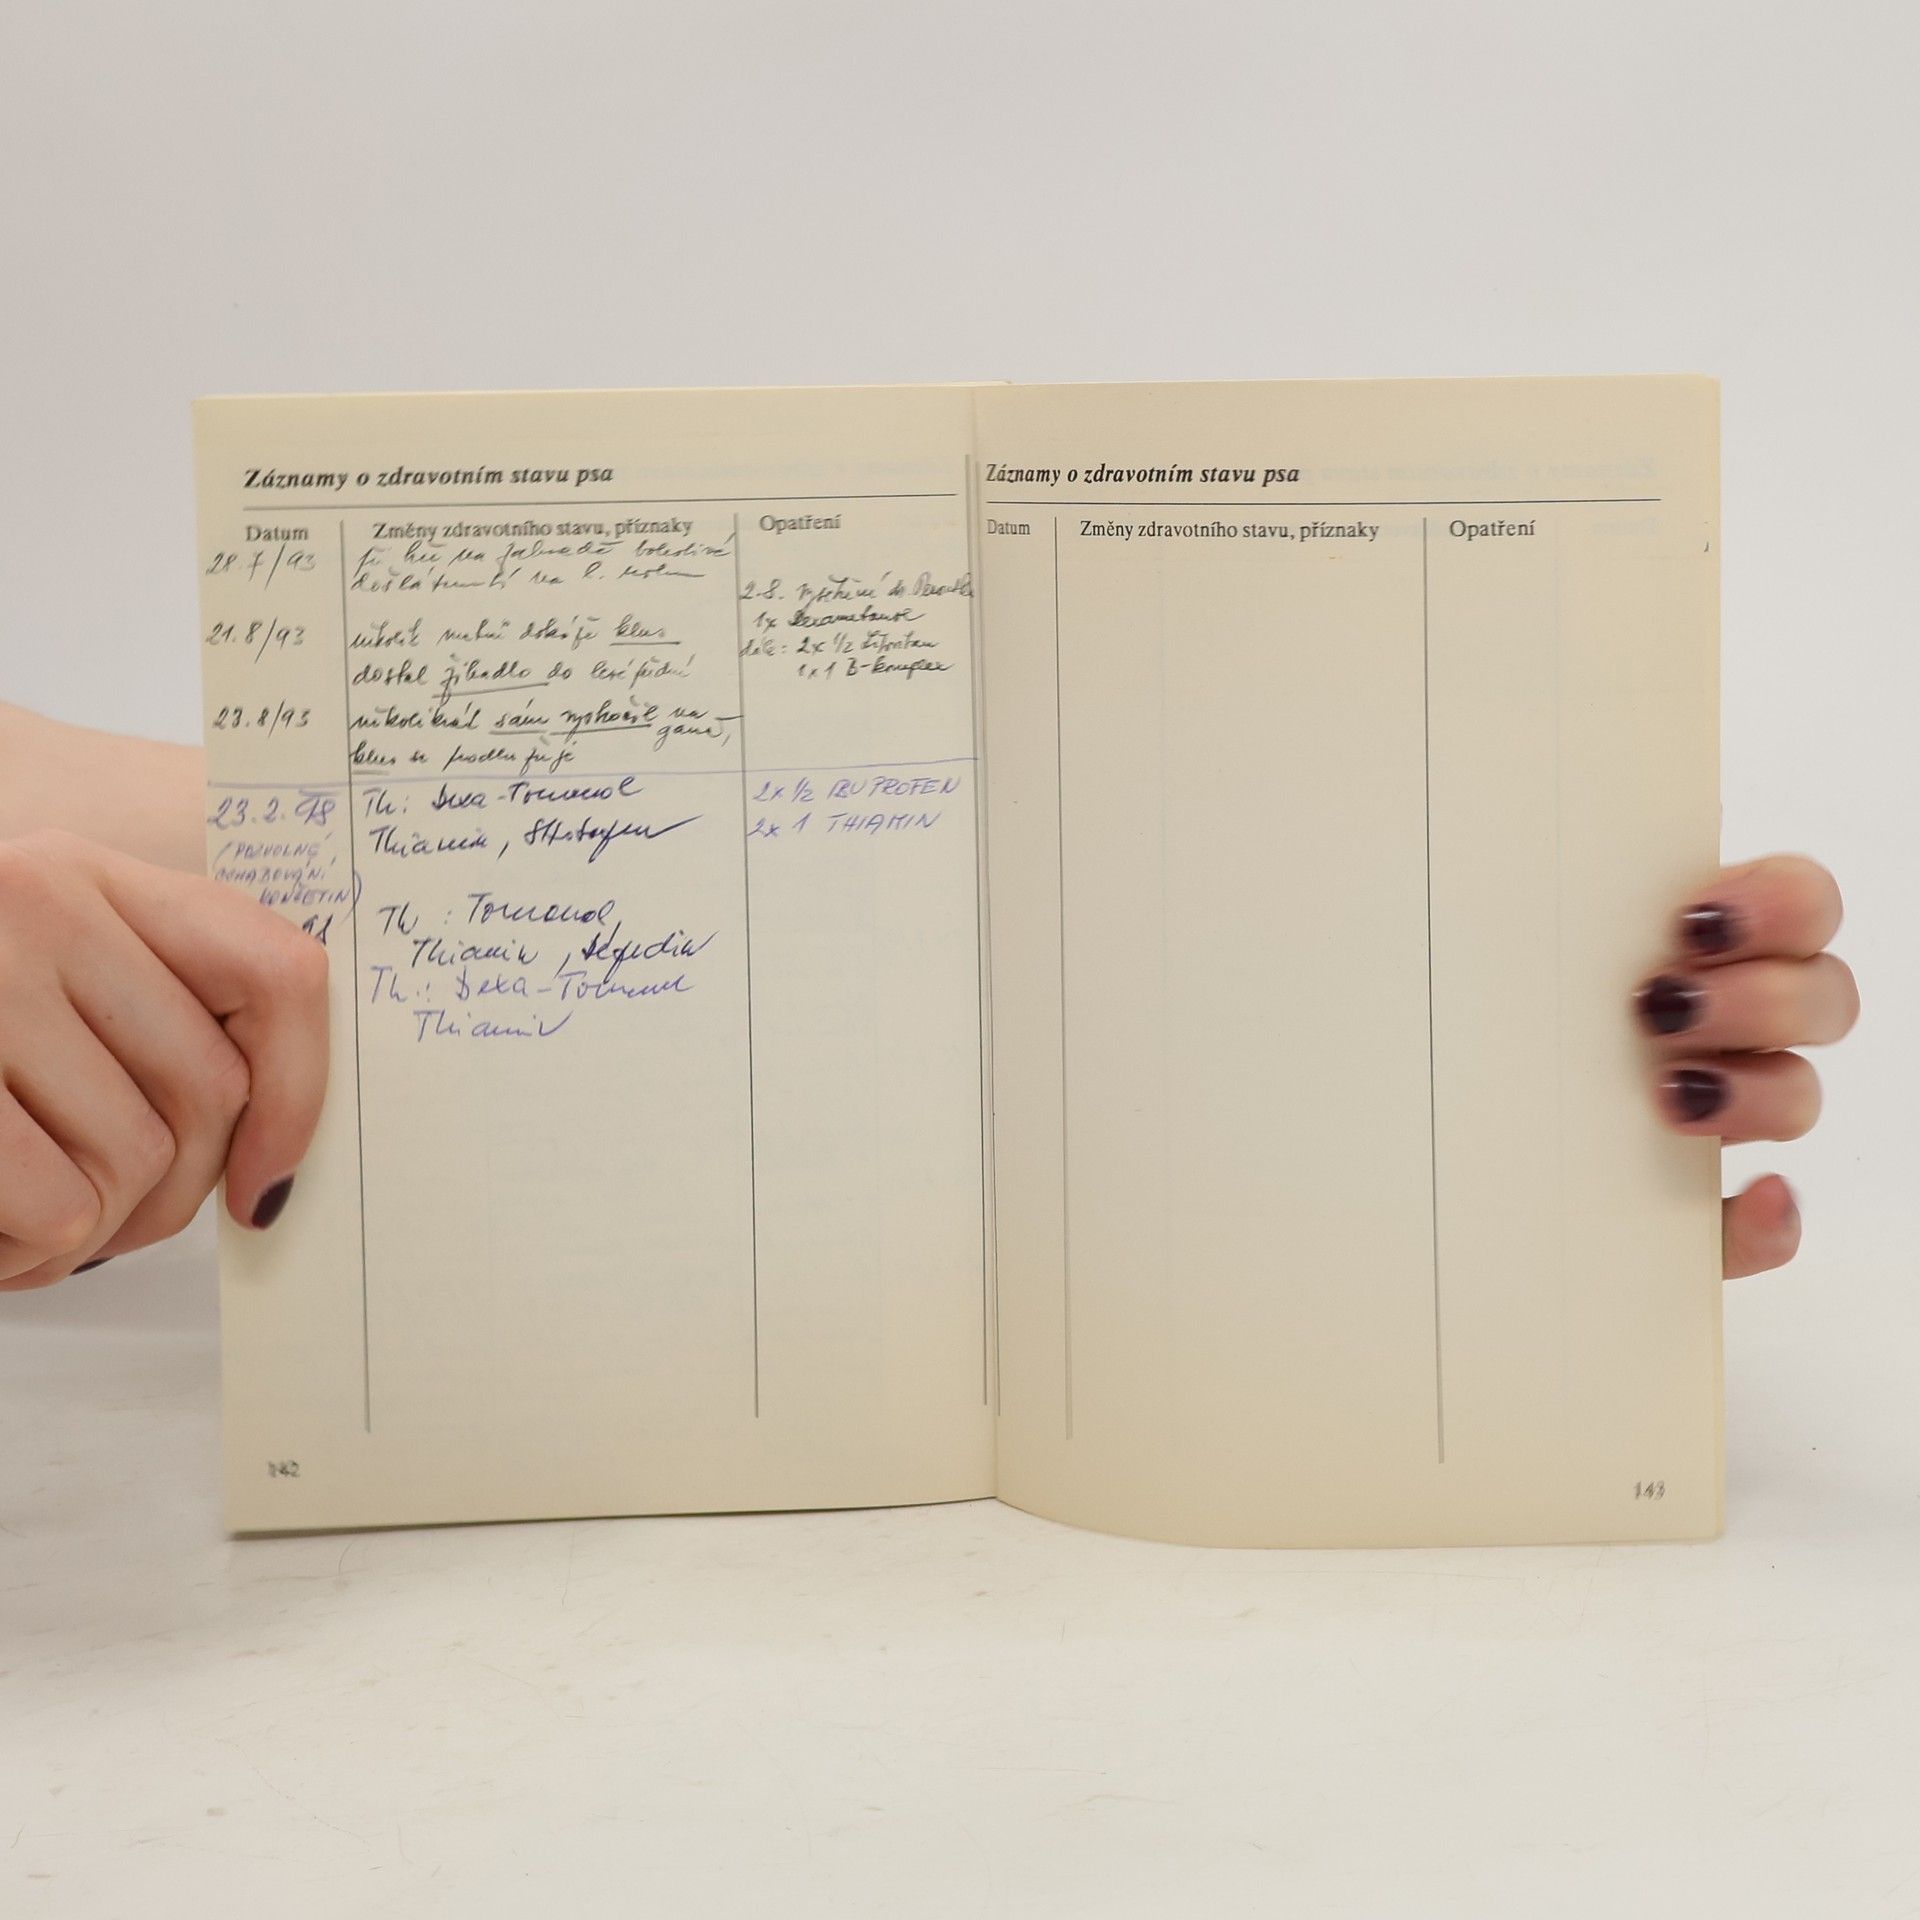 Záznamy o zdravotním stavu psa
Datum Změny zdravotního stavu, příznaky Opatření
28.7/93 při hře na zahradě bolestivě
došlápnutí na l. nohu
2.8. vyšetření dr.
1x
21.8/93 několik metrů dokáže klus dále: 2x 1/2
dostal žihadlo do 1x1 B-komplex
23.8/93 několikrát sám vyskočil na
gauč,
klus se prodlužuje
23.2.98 Th: Dexa-Tomanol 2x 1/2 IBUPROFEN
Thiamin, 2x 1 THIAMIN
(POZVOLNÉ
OCHABOVÁNÍ
KONČETIN)
98 Th: Tomanol,
Thiamin,
Th.: Dexa-Tomanol
Thiamin
142
Záznamy o zdravotním stavu psa
Datum Změny zdravotního stavu, příznaky Opatření
143